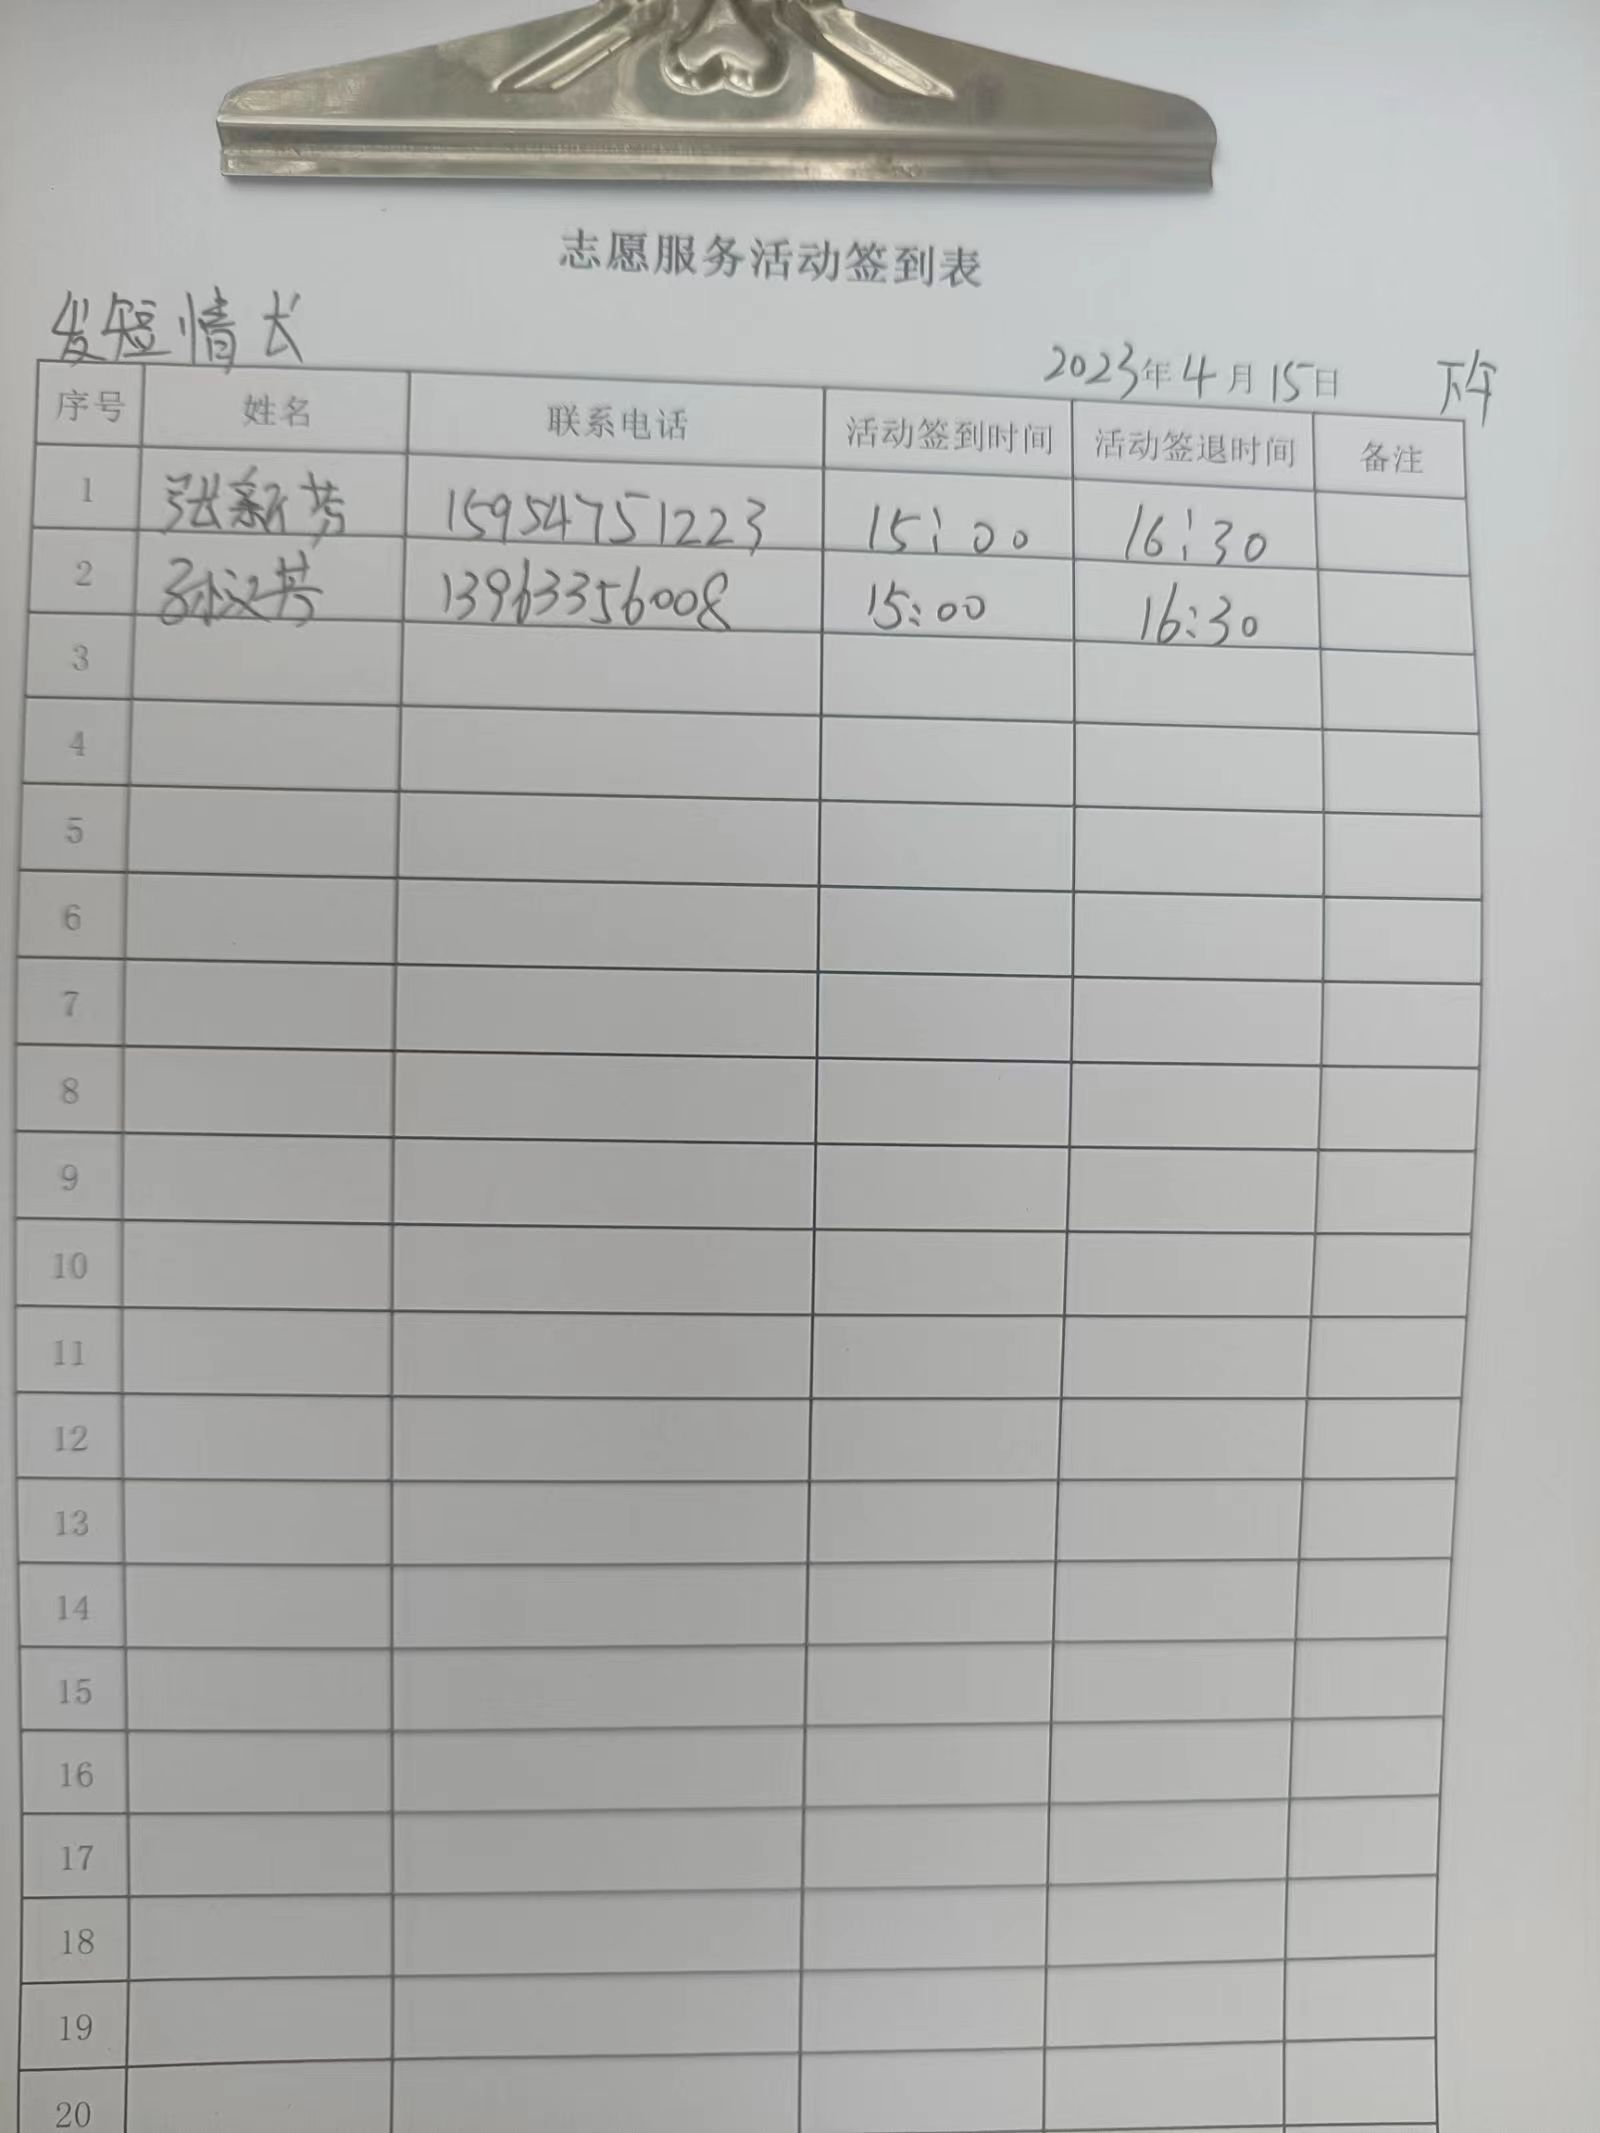 志愿服务活动签到表
发短情长
2023年4月15日 下午
序号 姓名 联系电话 活动签到时间 活动签退时间 备注
1 张新芳 15954751223 15:00 16:30
2 孙汉芳 13963356008 15:00 16:30
3
4
5
6
7
8
9
10
11
12
13
14
15
16
17
18
19
20